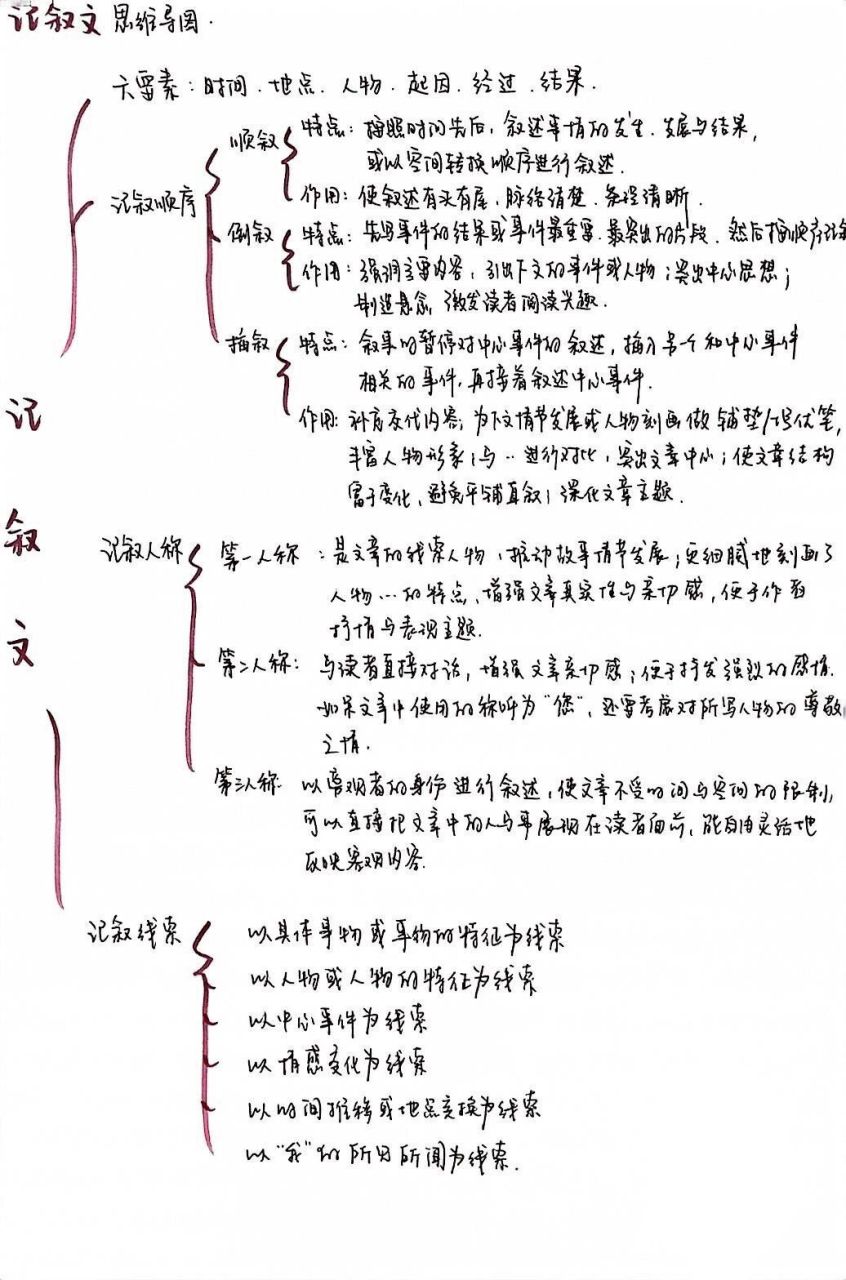 记叙文思维导图.
六要素：时间.地点.人物.起因.经过.结果.
记叙顺序
顺叙
特点：按照时间先后，叙述事情的发生.发展与结果，
或以空间转换顺序进行叙述.
作用：使叙述有头有尾，脉络清楚.条理清晰.
倒叙
特点：先写事件的结果或事件最重要.最突出的片段.然后按顺序记叙
作用：强调主要内容，引出下文的事件或人物；突出中心思想；
制造悬念，激发读者阅读兴趣.
插叙
特点：叙事时暂停对中心事件的叙述，插入另一个和中心事件
相关的事件，再接着叙述中心事件.
作用：补充交代内容；为下文情节发展或人物刻画做铺垫/埋伏笔，
丰富人物形象；与..进行对比，突出文章中心；使文章结构
富于变化，避免平铺直叙；深化文章主题.
记
叙
文
记叙人称
第一人称：是文章的线索人物，推动故事情节发展；更细腻地刻画了
人物...的特点，增强文章真实性与亲切感，便于作者
抒情与表现主题.
第二人称：与读者直接对话，增强文章亲切感；便于抒发强烈的感情.
如果文章中使用的称呼为"您"，还要考虑对所写人物的尊敬
之情.
第三人称：以旁观者的身份进行叙述，使文章不受时间与空间的限制，
可以直接把文章中的人与事展现在读者面前，能自由灵活地
反映客观内容.
记叙线索
以具体事物或事物的特征为线索
以人物或人物的特征为线索
以中心事件为线索
以情感变化为线索
以时间推移或地点变换为线索
以"我"的所见所闻为线索.